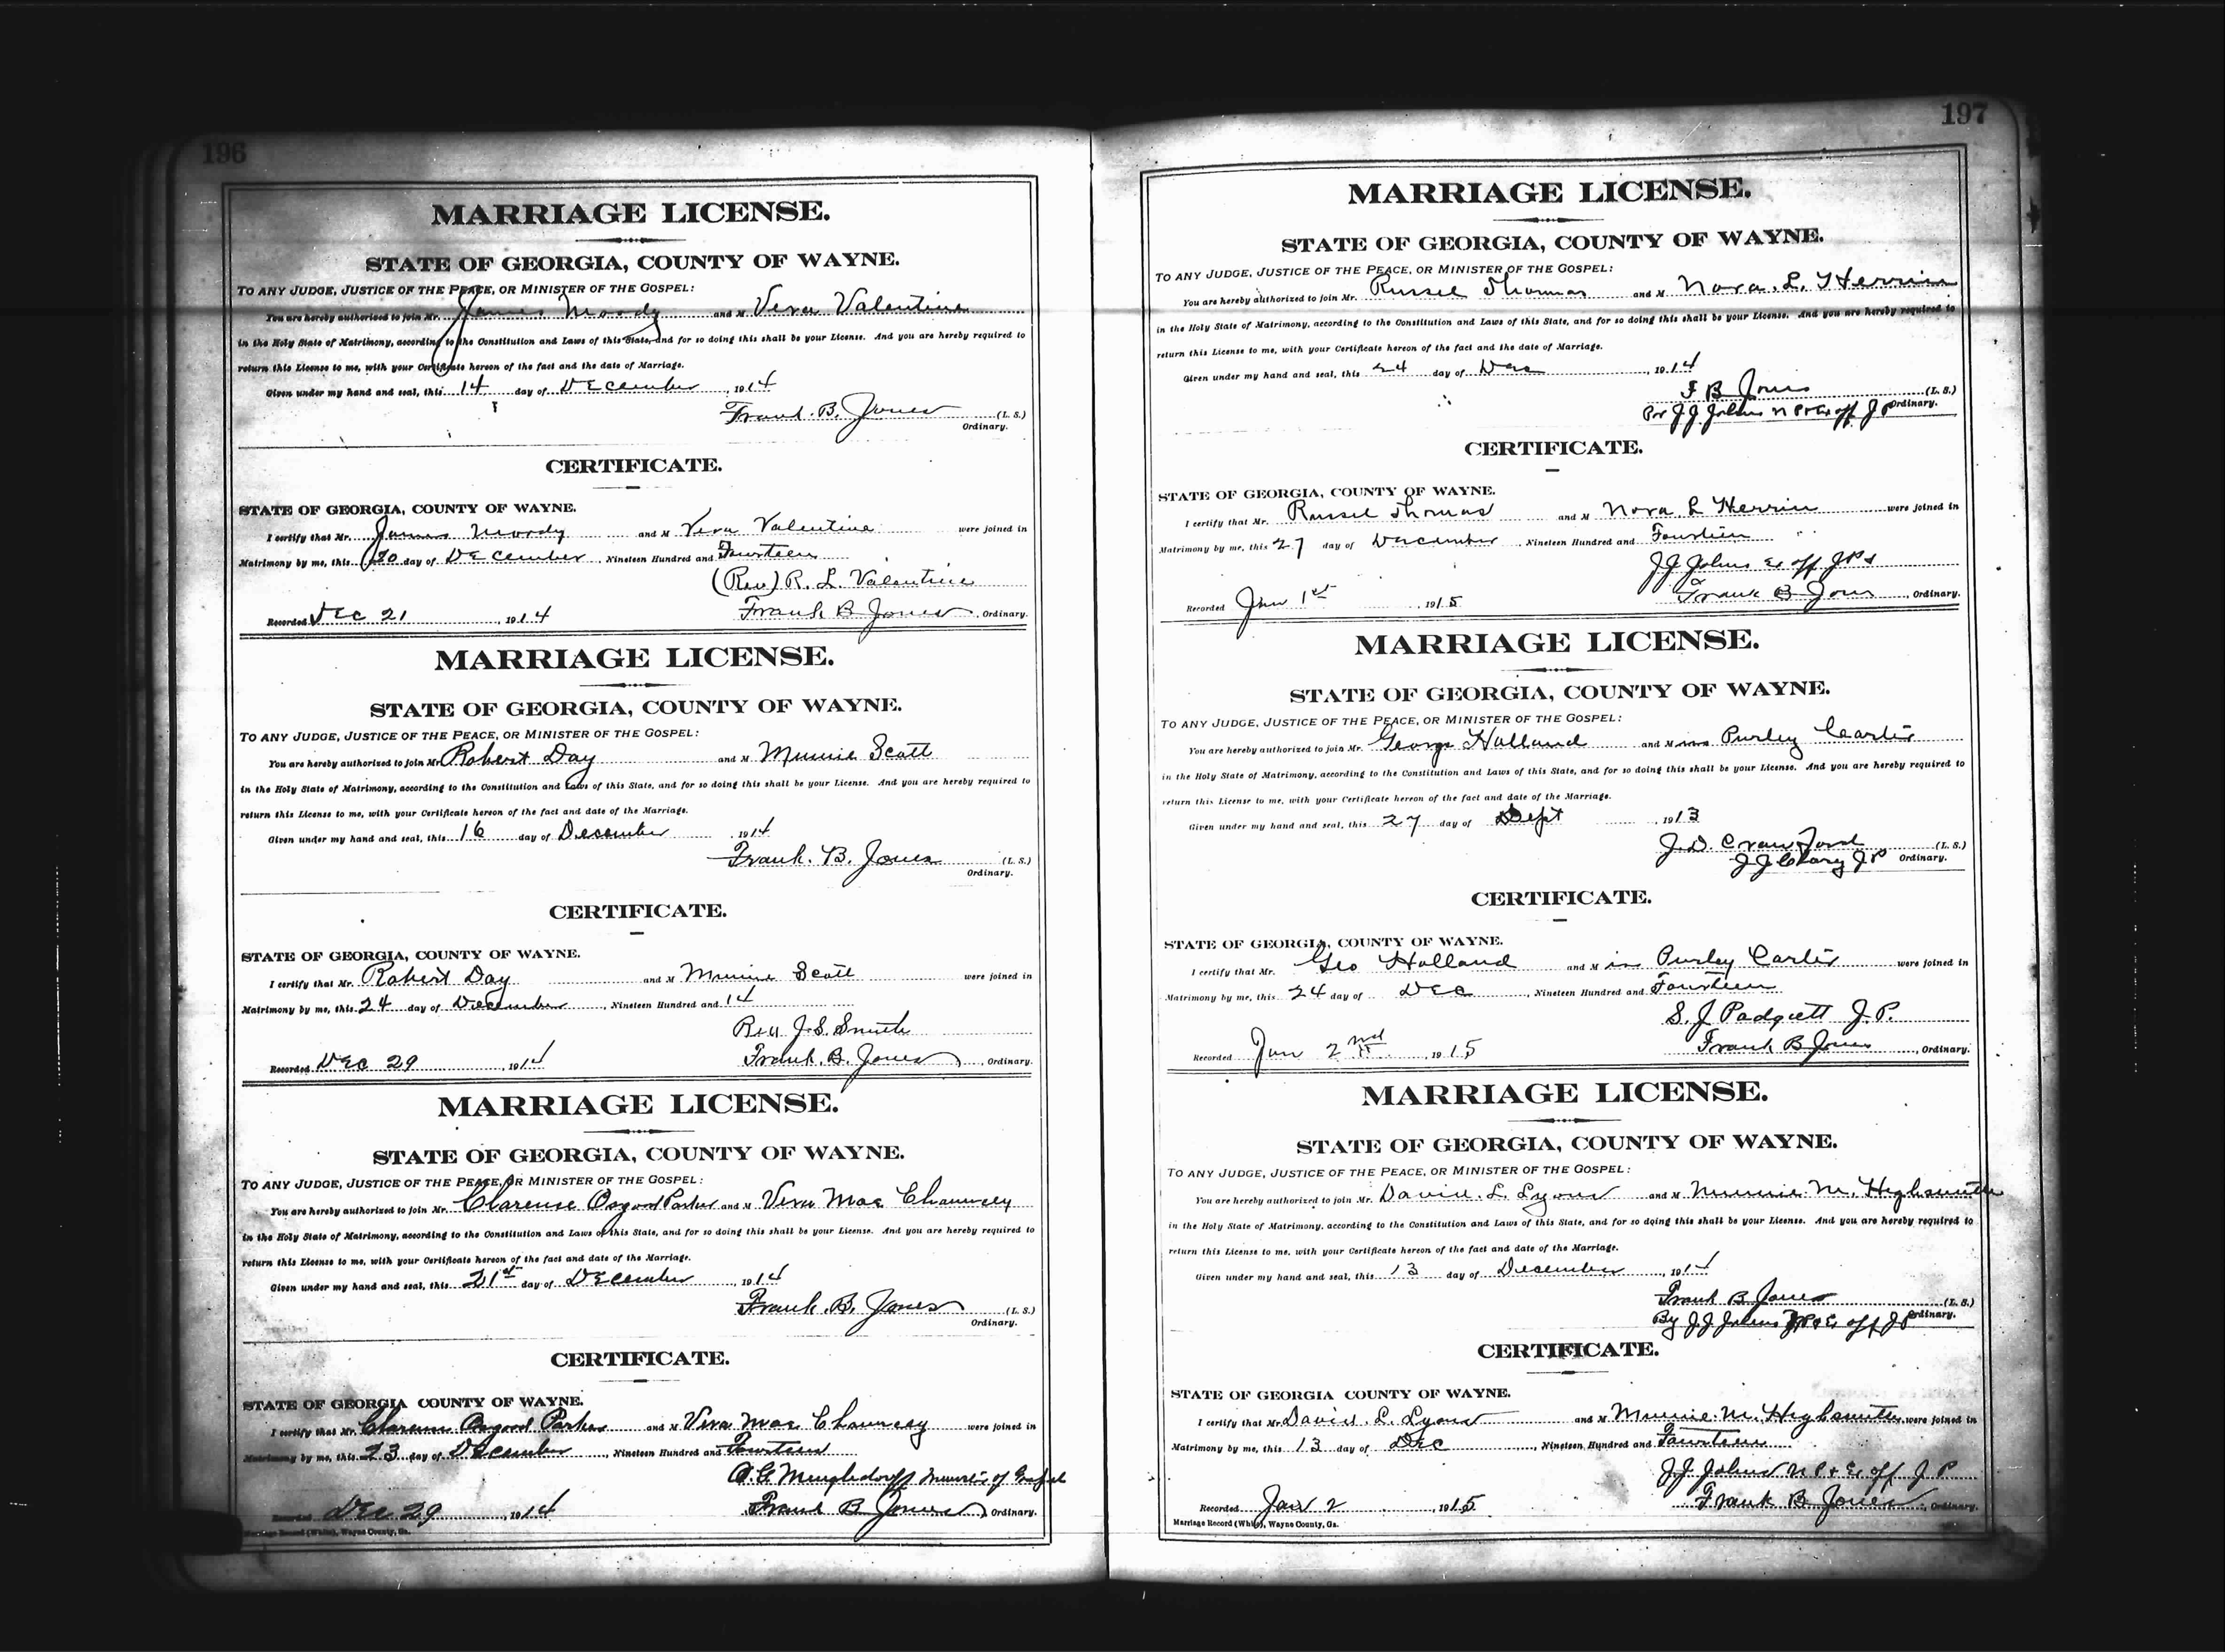 196
MARRIAGE LICENSE.
STATE OF GEORGIA, COUNTY OF WAYNE.
TO ANY JUDGE, JUSTICE OF THE PEACE, OR MINISTER OF THE GOSPEL:
You are hereby authorized to join Mr. James Moody and M Vera Valentine
in the Holy State of Matrimony, according to the Constitution and Laws of this State, and for so doing this shall be your License. And you are hereby required to
return this License to me, with your Certificate hereon of the fact and the date of Marriage.
Given under my hand and seal, this 14 day of December, 1914
Frank. B. Jones (L. S.)
Ordinary.
CERTIFICATE.
STATE OF GEORGIA, COUNTY OF WAYNE.
I certify that Mr. James Moody and M Vera Valentine were joined in
Matrimony by me, this 20 day of December, Nineteen Hundred and Fourteen
(Rev) R. L. Valentine
Recorded Dec 21, 1914 Frank B Jones, Ordinary.
MARRIAGE LICENSE.
STATE OF GEORGIA, COUNTY OF WAYNE.
TO ANY JUDGE, JUSTICE OF THE PEACE, OR MINISTER OF THE GOSPEL:
You are hereby authorized to join Mr Robert Day and M Minnie Scott
in the Holy State of Matrimony, according to the Constitution and Laws of this State, and for so doing this shall be your License. And you are hereby required to
return this License to me, with your Certificate hereon of the fact and date of the Marriage.
Given under my hand and seal, this 16 day of December, 1914
Frank. B. Jones (L. S.)
Ordinary.
CERTIFICATE.
STATE OF GEORGIA, COUNTY OF WAYNE.
I certify that Mr. Robert Day and M Minnie Scott were joined in
Matrimony by me, this 24 day of December, Nineteen Hundred and 14
Rev J. S. Smith
Recorded Dec 29, 1914 Frank. B. Jones, Ordinary.
MARRIAGE LICENSE.
STATE OF GEORGIA, COUNTY OF WAYNE.
TO ANY JUDGE, JUSTICE OF THE PEACE, OR MINISTER OF THE GOSPEL:
You are hereby authorized to join Mr. Clarence Osgood Parker and M Vera Mae Chauncey
in the Holy State of Matrimony, according to the Constitution and Laws of this State, and for so doing this shall be your License. And you are hereby required to
return this License to me, with your Certificate hereon of the fact and the date of the Marriage.
Given under my hand and seal, this 21st day of December, 1914
Frank. B. Jones (L. S.)
Ordinary.
CERTIFICATE.
STATE OF GEORGIA COUNTY OF WAYNE.
I certify that Mr. Clarence Osgood Parker and M Vera Mae Chauncey were joined in
Matrimony by me, this 23 day of December, Nineteen Hundred and Fourteen
Minister of Gospel
Recorded Dec 29, 1914 Frank B Jones, Ordinary.
Marriage Record (White), Wayne County, Ga.
197
MARRIAGE LICENSE.
STATE OF GEORGIA, COUNTY OF WAYNE.
TO ANY JUDGE, JUSTICE OF THE PEACE, OR MINISTER OF THE GOSPEL:
You are hereby authorized to join Mr. Russel Thomas and M Nora. L. Herrin
in the Holy State of Matrimony, according to the Constitution and Laws of this State, and for so doing this shall be your License. And you are hereby required to
return this License to me, with your Certificate hereon of the fact and the date of Marriage.
Given under my hand and seal, this 24 day of Dec, 1914
F B Jones (L. S.)
Per J J Johns N P & Ex off J P Ordinary.
CERTIFICATE.
STATE OF GEORGIA, COUNTY OF WAYNE.
I certify that Mr. Russel Thomas and M Nora L Herrin were joined in
Matrimony by me, this 27 day of December, Nineteen Hundred and Fourteen
JJ Johns Ex off JP
Recorded Jan 1st, 1915 Frank B Jones, Ordinary.
MARRIAGE LICENSE.
STATE OF GEORGIA, COUNTY OF WAYNE.
TO ANY JUDGE, JUSTICE OF THE PEACE, OR MINISTER OF THE GOSPEL:
You are hereby authorized to join Mr. George Holland and Miss Purley Carter
in the Holy State of Matrimony, according to the Constitution and Laws of this State, and for so doing this shall be your License. And you are hereby required to
return this License to me, with your Certificate hereon of the fact and date of the Marriage.
Given under my hand and seal, this 27 day of Sept, 1913
J. D. Crawford (L. S.)
J J Clary J P Ordinary.
CERTIFICATE.
STATE OF GEORGIA, COUNTY OF WAYNE.
I certify that Mr. Geo Holland and Miss Purley Carter were joined in
Matrimony by me, this 24 day of Dec, Nineteen Hundred and Fourteen
S. J Padgett J. P.
Recorded Jan 2nd, 1915 Frank B Jones, Ordinary.
MARRIAGE LICENSE.
STATE OF GEORGIA, COUNTY OF WAYNE.
TO ANY JUDGE, JUSTICE OF THE PEACE, OR MINISTER OF THE GOSPEL:
You are hereby authorized to join Mr. David. L. Lyons and M Minnie. M. Highsmith
in the Holy State of Matrimony, according to the Constitution and Laws of this State, and for so doing this shall be your License. And you are hereby required to
return this License to me, with your Certificate hereon of the fact and the date of the Marriage.
Given under my hand and seal, this 13 day of December, 1914
Frank B Jones (L. S.)
By J. J Johns NP & Ex off J P Ordinary.
CERTIFICATE.
STATE OF GEORGIA COUNTY OF WAYNE.
I certify that Mr David. L. Lyons and M Minnie. M. Highsmith were joined in
Matrimony by me, this 13 day of Dec, Nineteen Hundred and Fourteen
JJ Johns N P & Ex off J P
Recorded Jan 2, 1915 Frank B Jones, Ordinary.
Marriage Record (White), Wayne County, Ga.